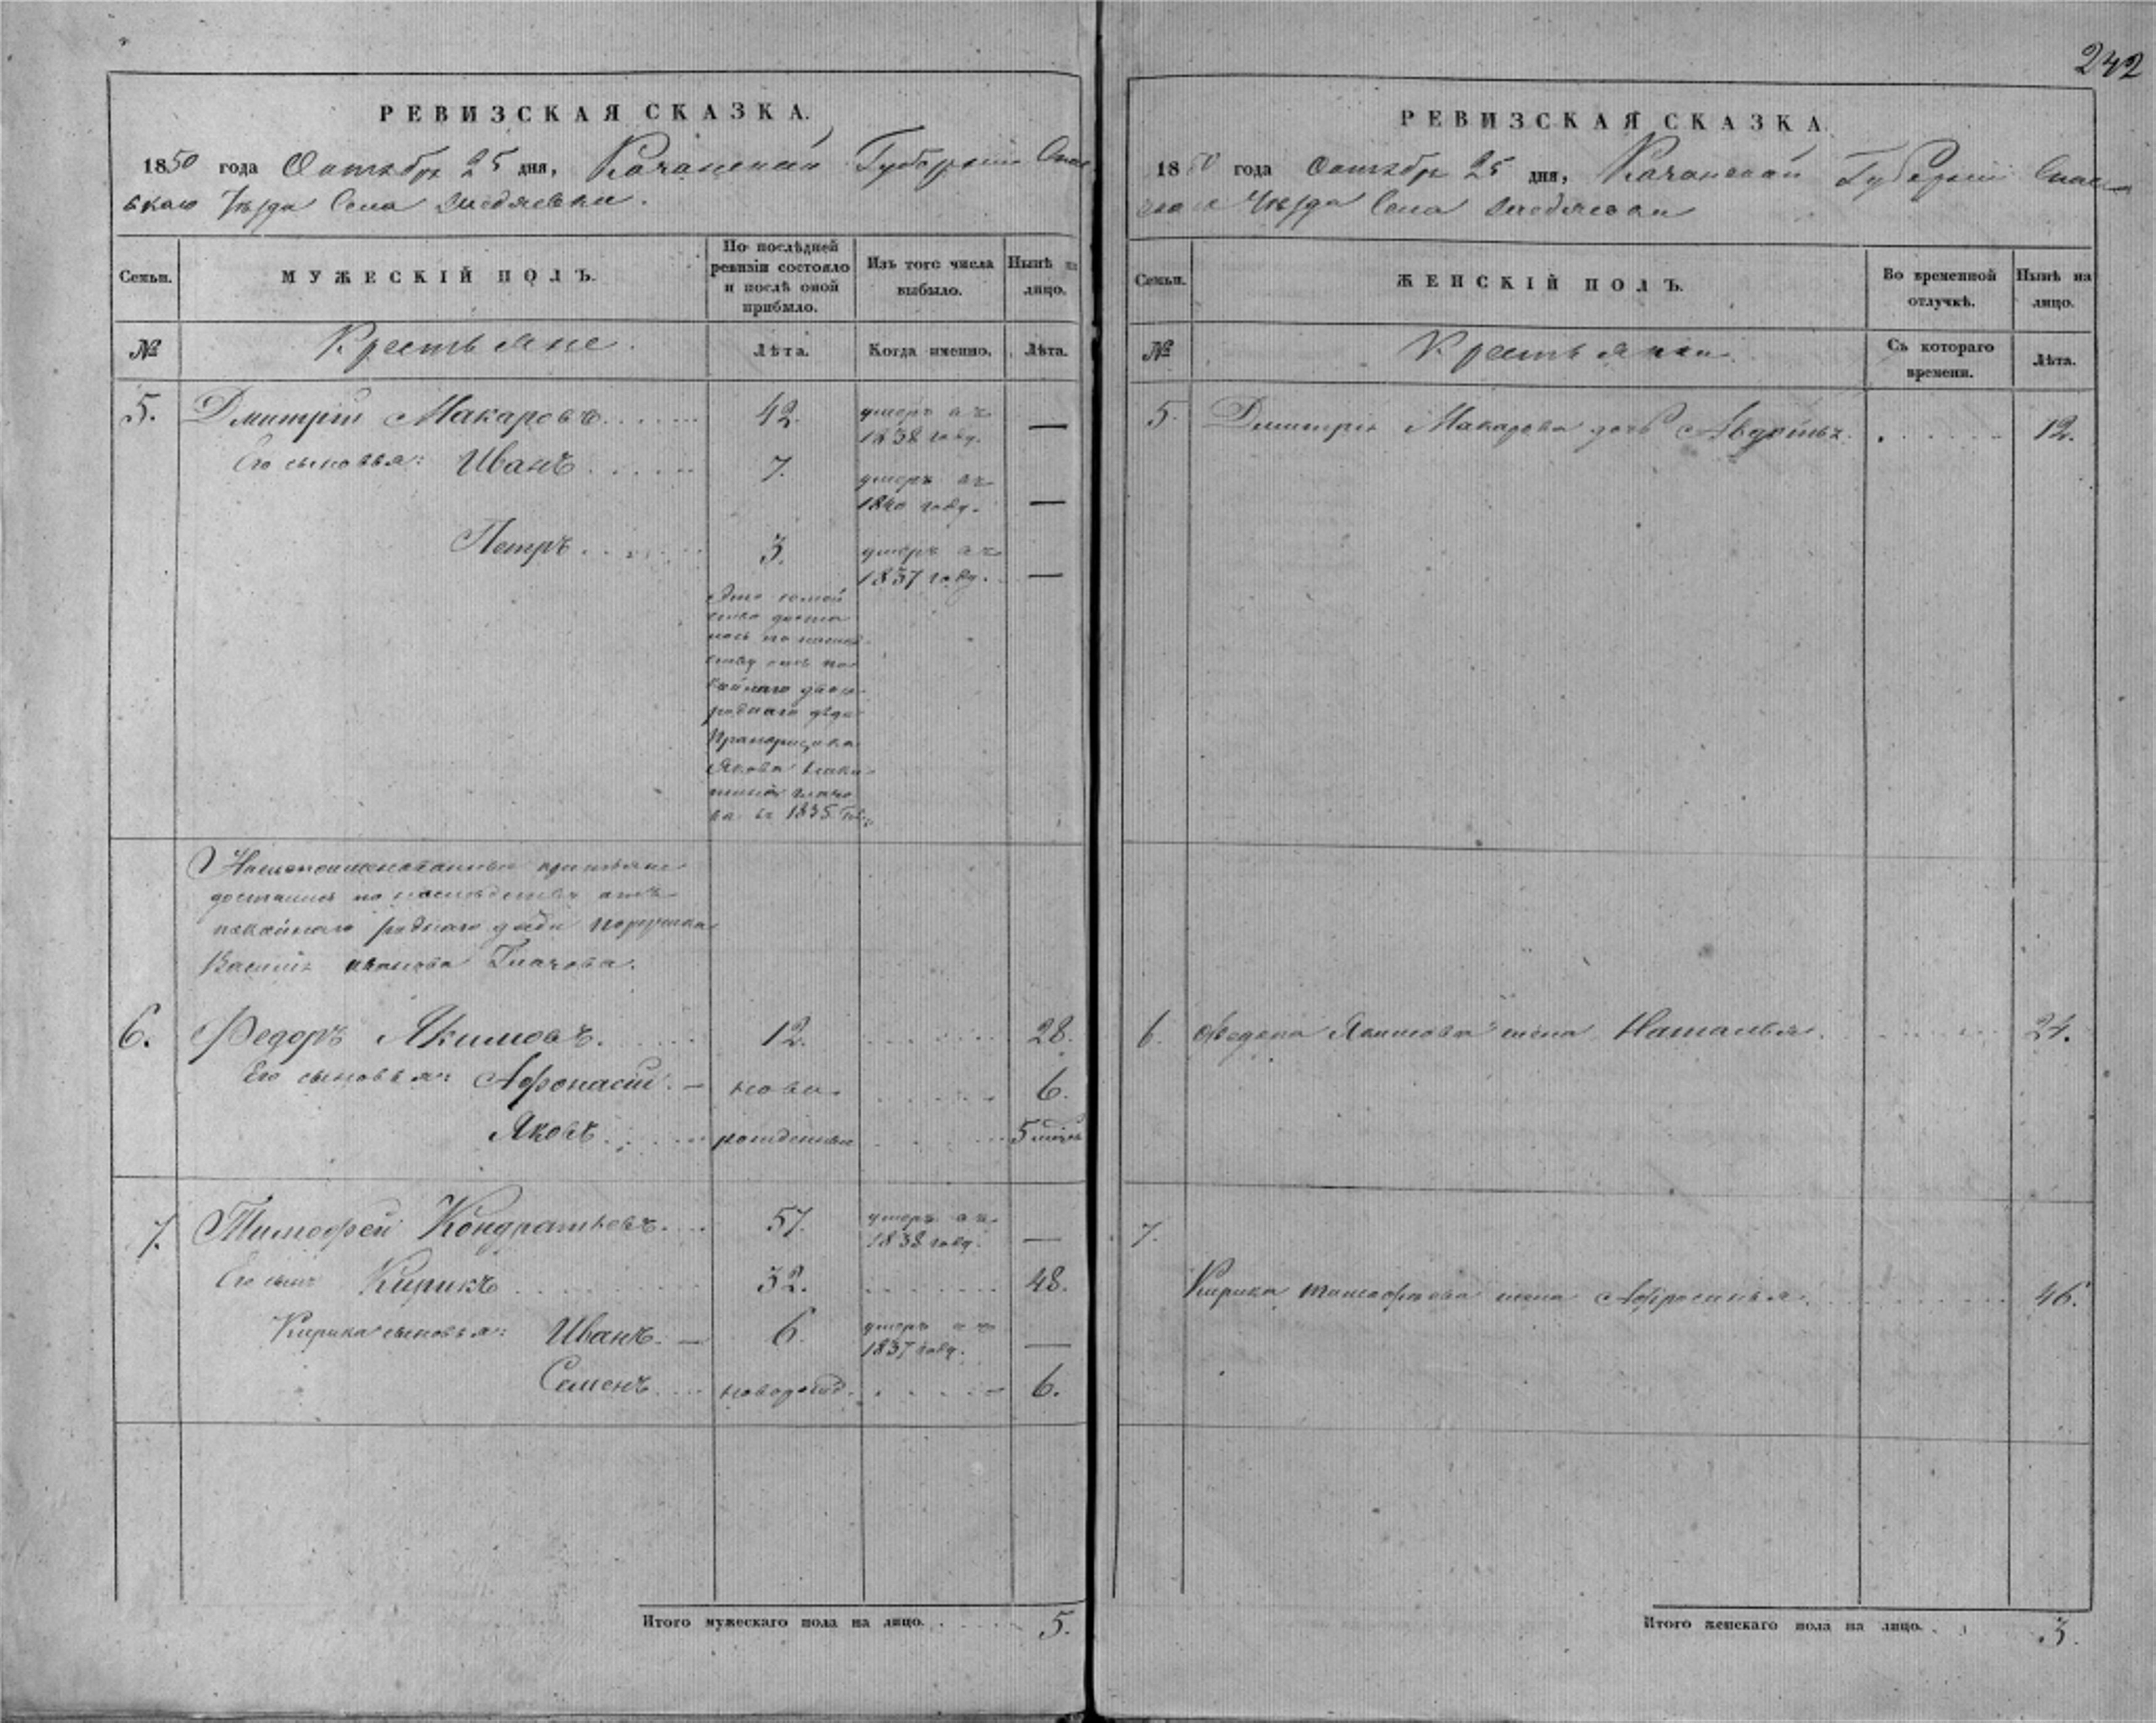 242
РЕВИЗСКАЯ СКАЗКА.
1850 года Октября 25 дня, Казанской Губернии Спас
скаго Уѣзда Села
Семьи.
МУЖЕСКІЙ ПОЛЪ.
По послѣдней ревизіи состояло и послѣ оной прибыло.
Изъ того числа выбыло.
Нынѣ на лицо.
№
Крестьяне.
Лѣта.
Когда именно.
Лѣта.
5. Дмитрій Макаровъ 42. умеръ въ 1838 году. —
Его сыновья: Иванъ 7. умеръ въ 1840 году. —
Петръ 3. умеръ въ 1837 году. —
Это семей
ство доста
лось по наслѣд
ству отъ по
койнаго двою
роднаго дѣда
Прапорщика
Якова
въ 1835 году
крестьяне
достались по наслѣдству отъ
покойнаго роднаго дяди поручика
Василія Иванова
6. Федоръ Якимовъ. 12. 28.
Его сыновья: Афонасій — ново 6.
Яковъ рожденные 5
7. Тимофей Кондратьевъ 57. умеръ въ 1838 году. —
Его сынъ Кирикъ 32. 48.
Кирика сыновья: Иванъ — 6. умеръ въ 1837 году. —
Семенъ новорожд. 6.
Итого мужескаго пола на лицо. 5.
РЕВИЗСКАЯ СКАЗКА.
1850 года Октября 25 дня, Казанской Губерніи Спас
Уѣзда Села
Семьи.
ЖЕНСКІЙ ПОЛЪ.
Во временной отлучкѣ.
Нынѣ на лицо.
№
Крестьянки.
Съ котораго времени.
Лѣта.
5. Дмитрія Макарова дочь Авдотья 12.
6. Федора Якимова жена Наталья 24.
7.
Кирика Тимофѣева жена Афросинья 46.
Итого женскаго пола на лицо. 3.